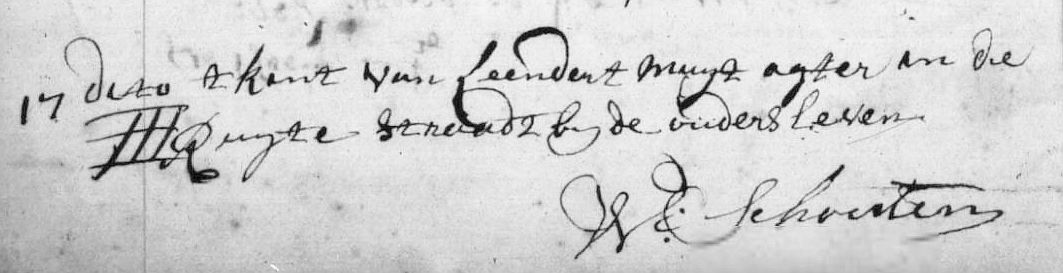 17 dito t kint van Leendert Muyt agter in die
III Ruyte straadt by de ouders leven
W: Schouten